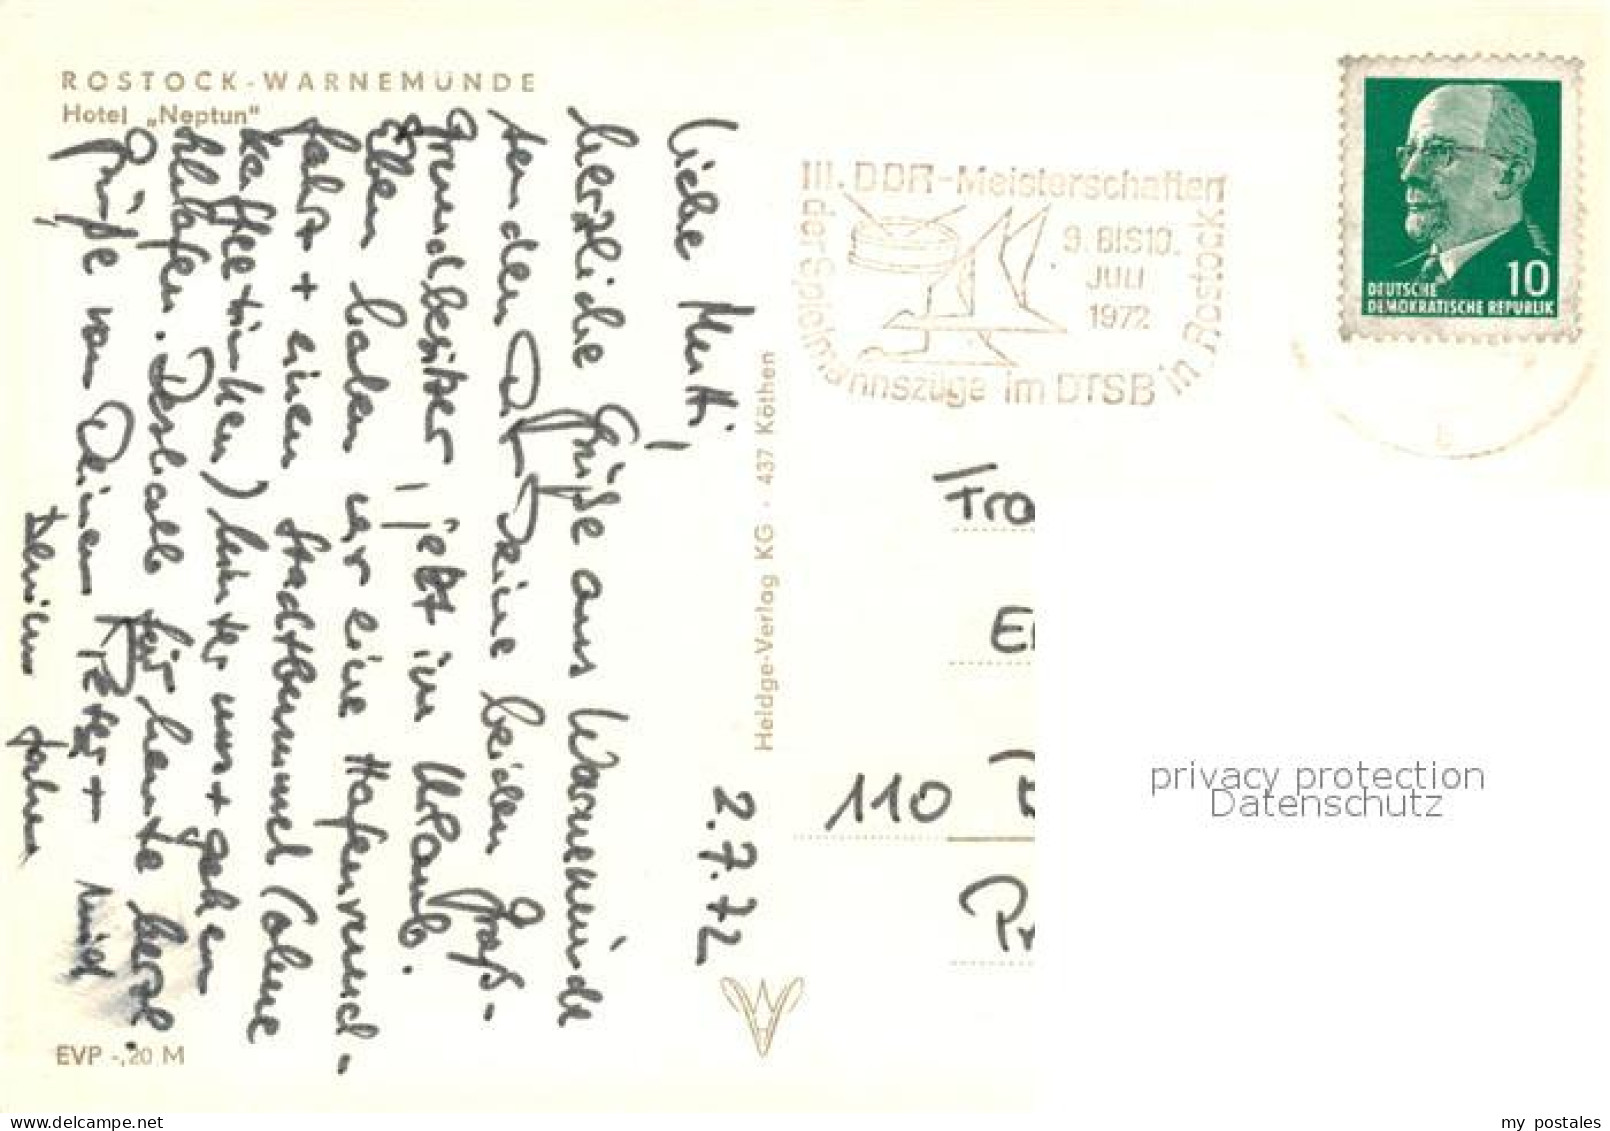 ROSTOCK-WARNEMÜNDE
Hotel „Neptun"
2.7.72
Liebe Mutti,
herzliche Grüße aus Warnemünde
senden Dir Deine beiden Groß-
grundbesitzer, jetzt im Urlaub.
Eben haben wir eine Hafenrund-
fahrt + einen Stadtbummel (ohne
Kaffeetrinken) hinter uns + gehen
schlafen. Deshalb für heute herzl.
Grüße von Deinen Peter + und
EVP -,20 M
Heldge-Verlag KG · 437 Köthen
III. DDR-Meisterschaften
der Spielmannszüge im DTSB in Rostock
9. BIS 10.
JULI
1972
10
DEUTSCHE
DEMOKRATISCHE REPUBLIK
Fra
El
110
privacy protection
Datenschutz
my postales
www.delcampe.net